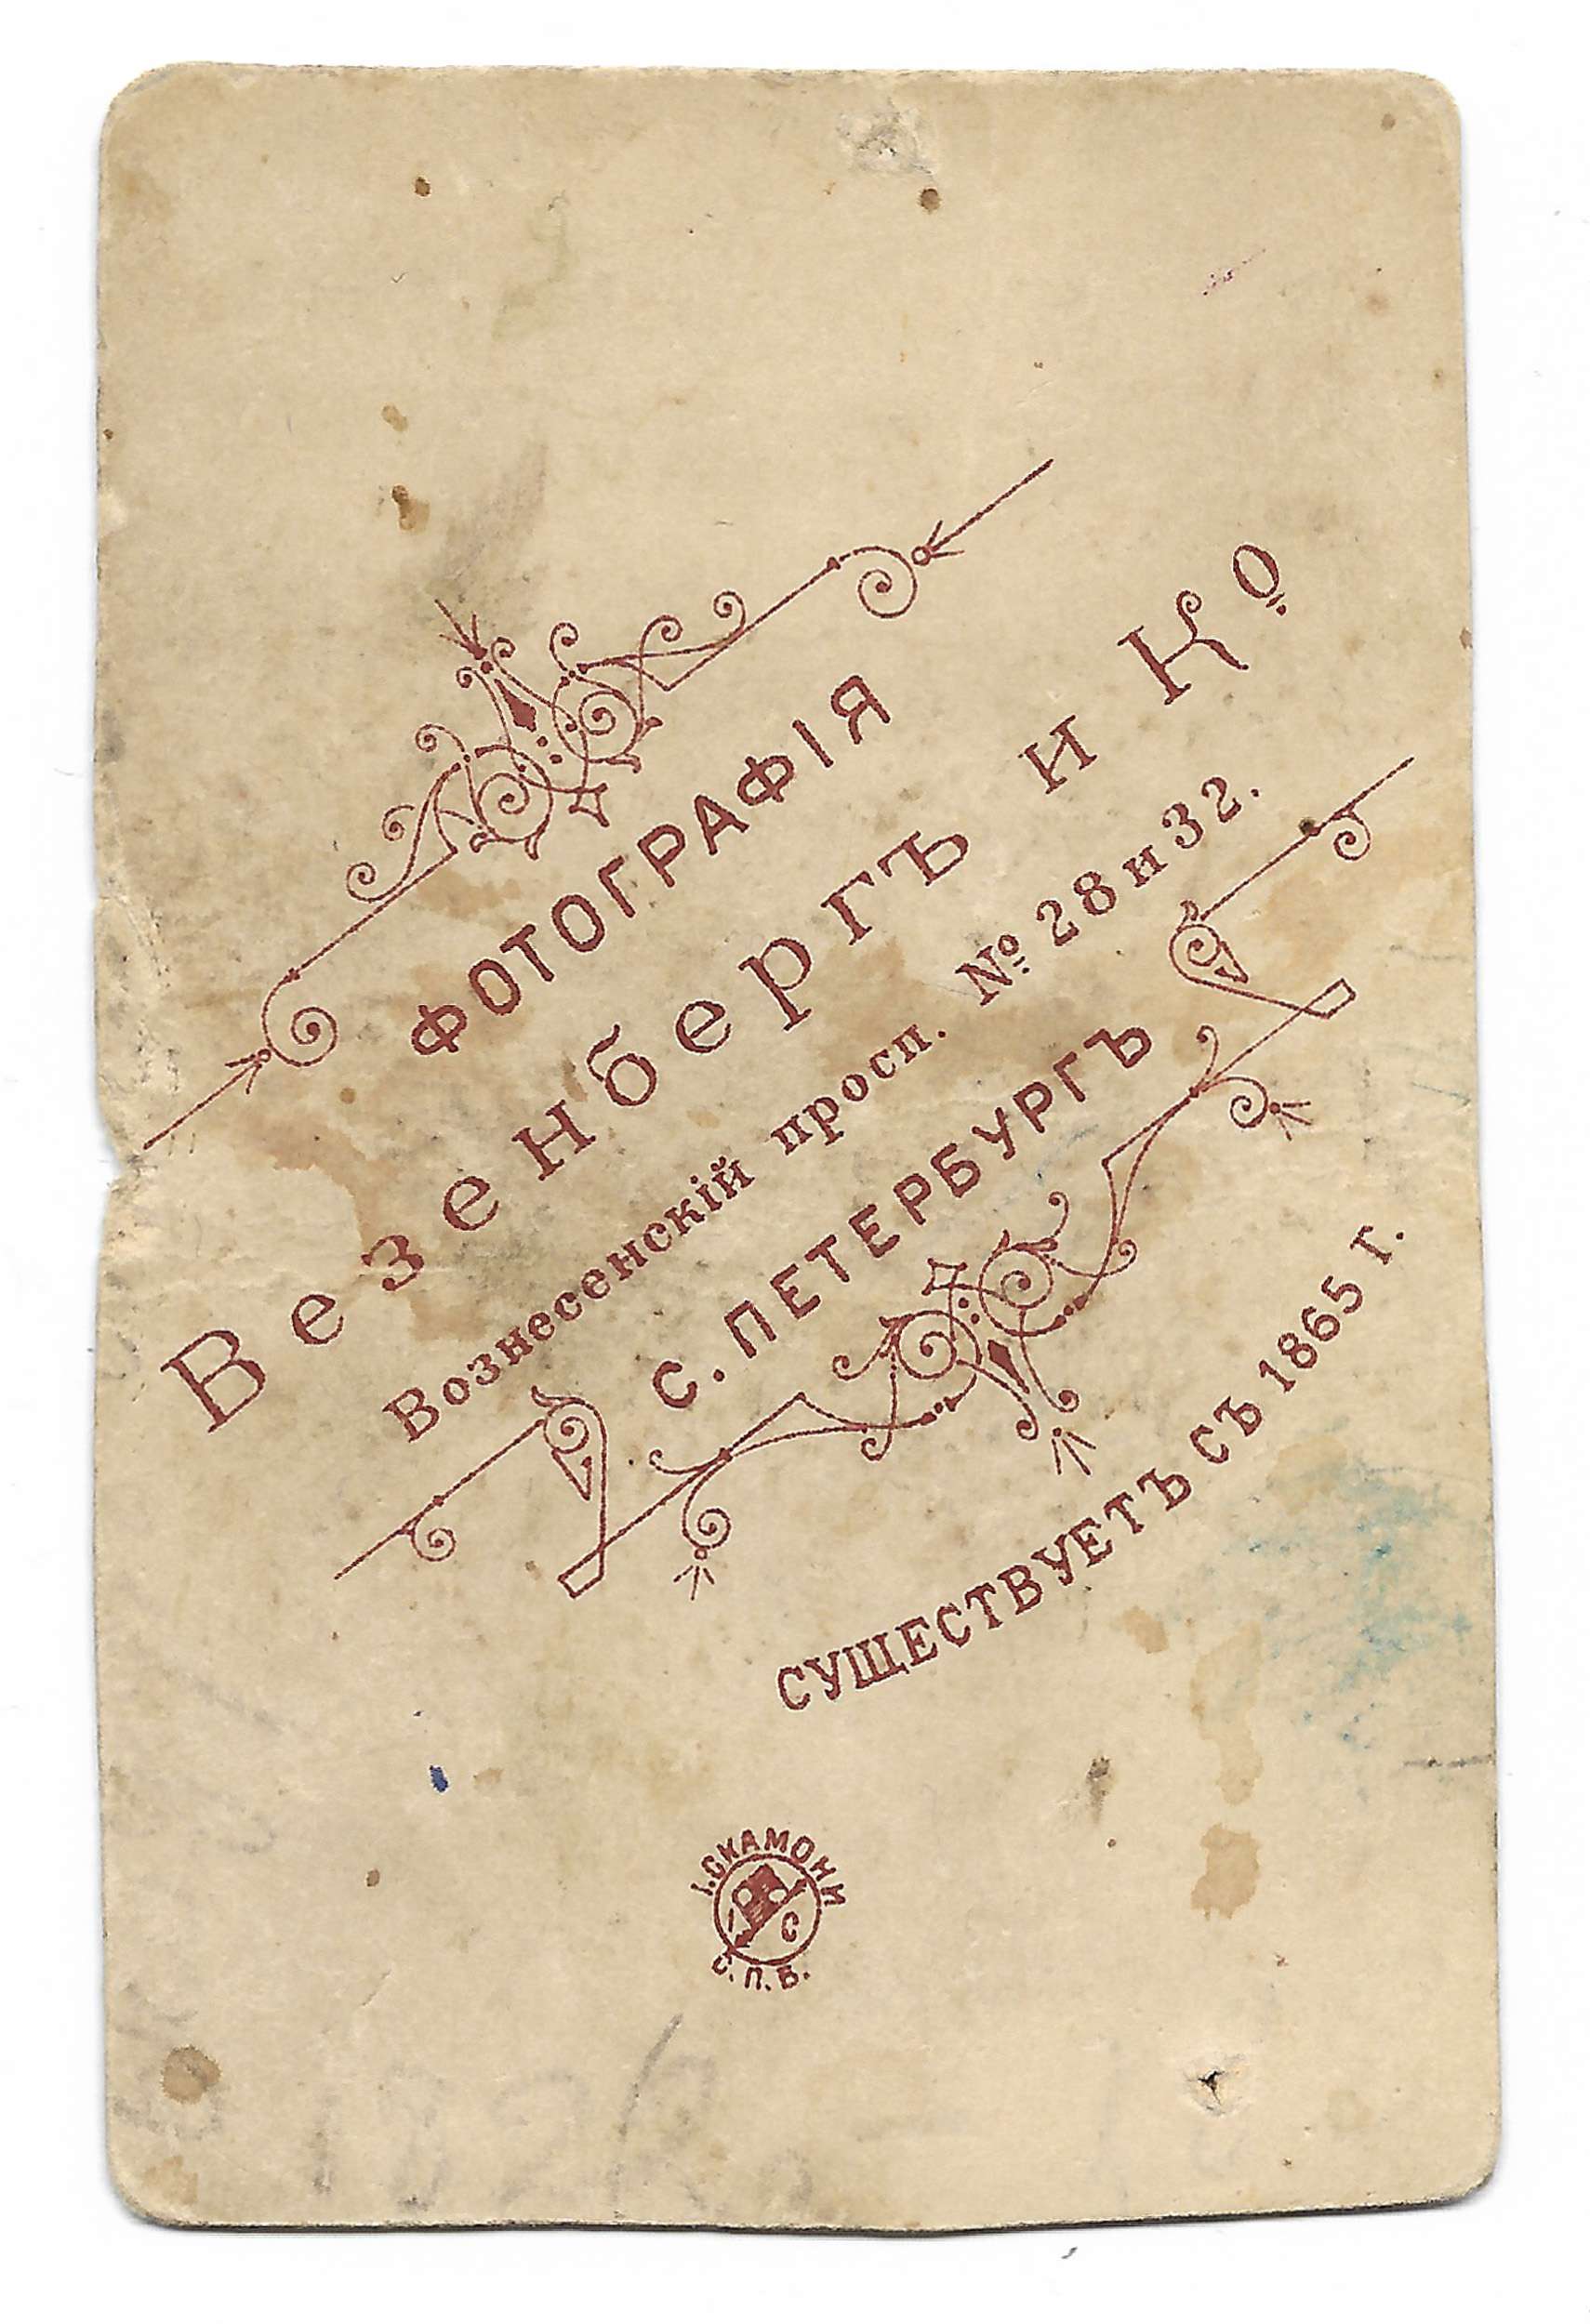 ФОТОГРАФІЯ
Везенбергъ и Ко
Вознесенскій просп. № 28 и 32.
С. ПЕТЕРБУРГЪ
СУЩЕСТВУЕТЪ СЪ 1865 Г.
І. СКАМОНИ
І С
С. П. Б.